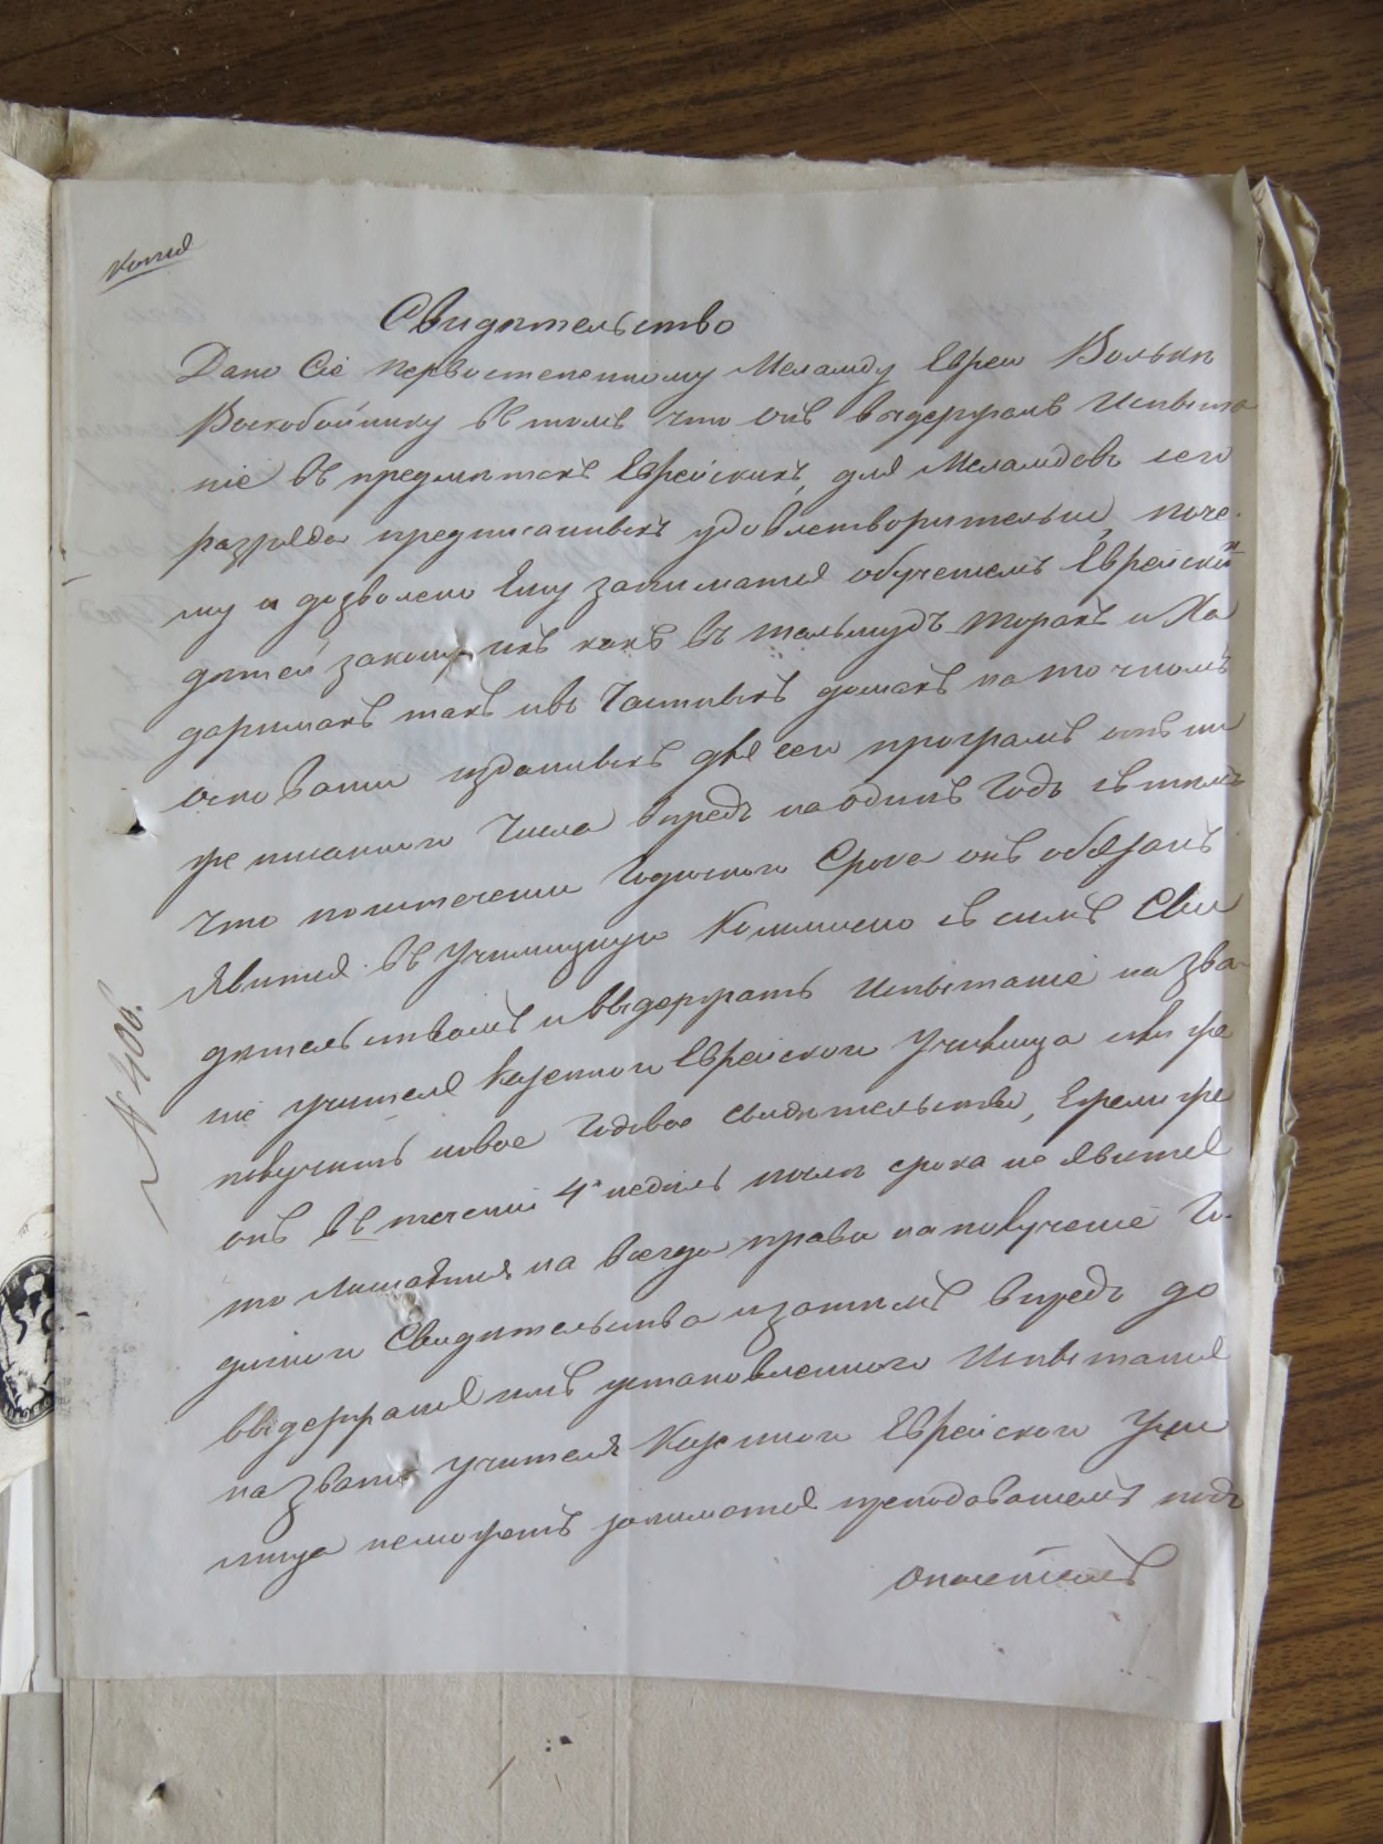 Копія
Свидѣтельство
Дано Сіе первостепенному Меламду Еврею Вольки
Воскобойнику въ томъ что онъ выдержалъ Испыта
ніе въ предметахъ Еврейскихъ, для Меламдовъ сего
разряда предписанныхъ удовлетворительно, поче-
му и дозволено Ему заниматся обученіемъ Еврейскихъ
дѣтей закону ихъ какъ въ тальмудъ-торахъ и Ха
даримахъ такъ и въ Частныхъ домахъ на точномъ
основаніи изданныхъ для сего програмъ отъ ни
же писанного Числа впредь на одинъ Годъ съ тѣмъ
Что по истеченіи Годичного Срока онъ обязанъ
явится въ Училищную Коммисію съ симъ Сви
дѣтельствомъ и выдержать Испытаніе на зва-
ніе учителя Казенного Еврейского Училища или же
получить новое Годовое свидѣтельство, Ежели же
онъ въ теченіи 4х недѣль послѣ срока не явится
то лишается на всегда права на полученіе Го-
дичного Свидѣтельства и затѣмъ впредь до
выдержанія имъ установленного Испытанія
на званіе учителя Казенного Еврейского Учи
лища неможетъ заниматся преподаваніемъ подъ
опасеніемъ
№ 406.